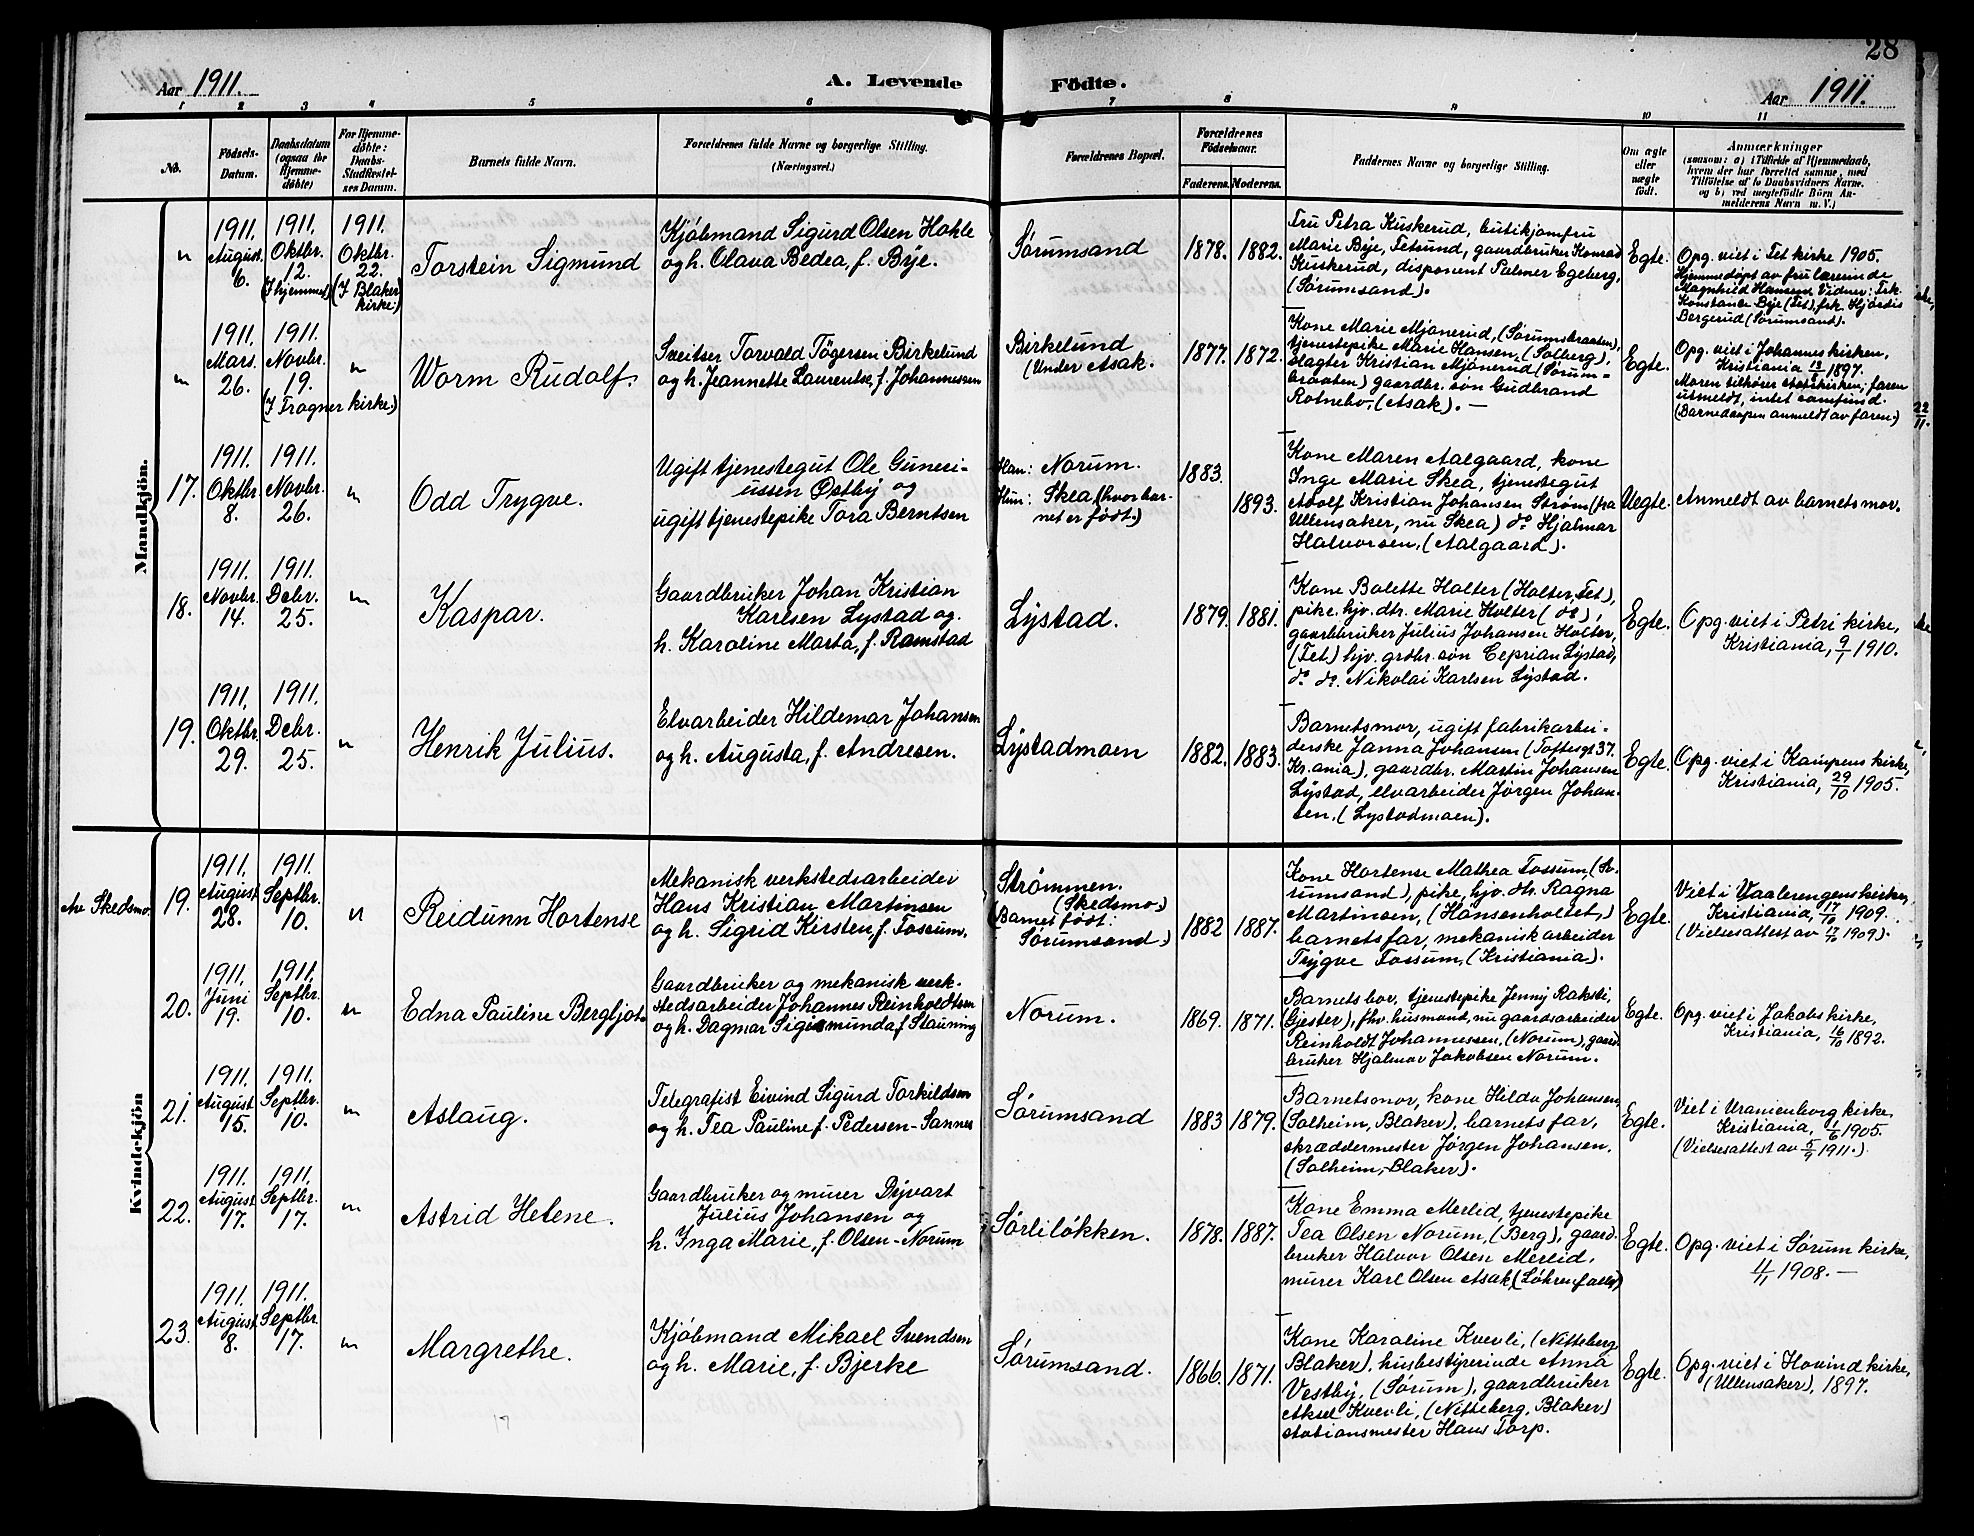 28
Aar 1911.
A. Levende
Födte.
Aar 1911.
1 2 3 4 5 6 7 8 9 10 11
No.
Födsels-
Datum.
Daabsdatum
(ogsaa for
Hjemme-
döbte)
For Hjemme-
döbte:
Daabs-
Stadfæstel-
ses Datum.
Barnets fulde Navn.
Forældrenes fulde Navne og borgerlige Stilling.
(Næringsvei.)
Forældrenes Bopæl.
Forældrenes
Födselsaar.
Faderens.
Moderens.
Faddernes Navne og borgerlige Stilling.
Om ægte
eller
uægte
født.
Anmærkninger
(saasom: a) i Tilfælde af Hjemmedaab,
hvem der har forrettet samme, med
Tilføielse af to Daabsvidners Navne.
og b) ved uægtefödte Börn An-
melderens Navn m. V.)
Mandkjön.
"
1911.
August
6.
1911.
Oktbr.
12.
(I hjemmet)
1911.
Oktbr.
22.
(I Blaker
kirke:)
Torstein Sigmund
Kjöbmand Sigurd Olsen Hohle
og h. Olava Bedea, f. Bye.
Sørumsand
1878.
1882.
Fru Petra Kuskerud, butikjomfru
Marie Bye, Fetsund, gaardbruker Konrad
Kuskerud, disponent Palmer Egeberg,
(Sørumsand).
Egte.
Opg. viet i Fet kirke 1905.
Hjemmedøpt av fru lærerinde
Magnhild Hansen Vidner: Frk.
Konstance Bye (Fet), frk. Hjørdis
Bergerud (Sørumsand).
"
1911.
Mars.
26.
1911.
Novbr.
19.
(I Frogner kirke.)
"
Worm Rudolf.
Sveitser Torvald Tögersen Birkelund
og h. Jeannette Laurentse, f. Johannessen
Birkelund
(Under Asak.
1877.
1872.
Kone Marie Mjønerud, (Sørumsbraaten),
tjenestepike Marie Hansen, (Solberg),
slagter Kristian Mjønerud (Sørum-
braaten) gaardbr. søn Gudbrand
Rotnebo, (Asak). —
Egte.
Opg. viet i Johanneskirken,
Kristiania 13/ 1897.
Moren tilhører statskirken; faren
utmeldt, intet samfund.
(Barnedaapen anmeldt av faren.)
17.
1911.
Oktbr.
8.
1911.
Novbr.
26.
"
Odd Trygve.
Ugift tjenestegut Ole Guneri-
ussen Østby og
ugift tjenestepike Tora Berntsen
Han: Norum.
Hun: Skea (hvor bar-
net er født.)
1883.
1893.
Kone Maren Aalgaard, kone
Inge Marie Skea, tjenestegut
Adolf Kristian Johansen Strøm (fra
Ullensaker, nu Skea) do Hjalmar
Halvorsen, (Aalgaard).
Uegte.
Anmeldt av barnets mor.
18.
1911.
Novbr.
14.
1911.
Debr.
25.
"
Kaspar.
Gaardbruker Johan Kristian
Karlsen Lystad og
h. Karoline Marta, f. Ramstad
Lystad.
1879.
1881.
Kone Bolette Holter (Holter, Fet),
pike. hjv. dtr. Marie Holter (do),
gaardbruker Julius Johansen Holter,
(Fet) hjv. grdbr. søn Ceprian Lystad,
do do. Nikolai Karlsen Lystad.
Egte.
Opg. viet i Petri kirke,
Kristiania, 9/1 1910.
19.
1911.
Oktbr.
29.
1911.
Debr.
25.
"
Henrik Julius.
Elvarbeider Hildemar Johansen
og h. Augusta, f. Andresen.
Lystadmoen
1882.
1883.
Barnets mor, ugift fabrikarbei-
derske Janna Johansen (Toftesgt 37.
Kr.ania), gaardbr. Martin Johansen
Lystad, elvarbeider Jørgen Johan-
sen, (Lystadmoen).
Egte.
Opg. viet i Kampens kirke,
Kristiania, 29/10 1905.
Kvindekjön
Av Skedsmo.
19.
1911.
August
28.
1911.
Septbr.
10.
"
Reidunn Hortense
Mekanisk verkstedsarbeider
Hans Kristian Martinsen
og h. Sigrid Kirsten, f. Fossum.
Strømmen.
(Skedsmo.)
(Barnet født:
Sørumsand.)
1882
1887.
Kone Hortense Mathea Fossum, (Sø-
rumsand), pike, hjv. dtr. Ragna
Martinsen, (Hansenholtet,)
barnets far, mekanisk arbeider
Trygve Fossum, (Kristiania).
Egte.
Viet i Vaalerengens kirke,
Kristiania, 17/10 1909.
(Vielsesattest av 17/10 1909).
20.
1911.
Juni
19.
1911.
Septbr.
10.
"
Edna Pauline Bergljot.
Gaardbruker og mekanisk verk-
stedsarbeider Johannes Reinholdtsen
og h. Dagmar Sigismunda f. Stauning
Norum.
1869.
1871.
Barnets bor, tjenestepike Jenny Raksti,
(Gjester), fhv. husmand, nu gaardsarbeider
Reinholdt Johannessen, (Norum), gaard-
bruker Hjalmar Jakobsen Norum.
Egte.
Opg. viet i Jakobs kirke,
Kristiania, 16/10 1892.
21.
1911.
August
15.
1911.
Septbr.
10.
"
Aslaug.
Telegrafist Eivind Sigurd Torkildsen
og h. Tea Pauline f. Pedersen-Sannes
Sørumsand
1883
1879.
Barnets mor, kone Hilda Johansen,
(Solheim, Blaker), barnets far,
skræddermester Jørgen Johansen.
(Solheim, Blaker).
Egte.
Viet i Uranienborg kirke,
Kristiania, 1/6 1905.
(Vielsesattest av 5/9 1911.)
22.
1911.
August
17.
1911.
Septbr.
17.
"
Astrid Helene.
Gaardbruker og murer Dyvart
Julius Johansen og
h. Inga Marie, f. Olsen-Norum
Sørliløkken.
1878.
1887.
Kone Emma Merlid, tjenestepike
Tea Olsen Norum, (Berg), gaard-
bruker Halvor Olsen Merlid,
murer Karl Olsen Asak,
Egte.
Opg. viet i Sørum kirke,
4/1 1908. —
23.
1911.
August.
8.
1911.
Septbr.
17.
"
Margrethe.
Kjøbmand Mikael Svendsen
og h. Marie, f. Bjerke
Sørumsand.
1866.
1871.
Kone Karaline Kverli, (Nitteberg
Blaker), husbestyrerinde Anna
Vestby, (Sørum), gaardbruker
Aksel Kverli, (Nitteberg, Blaker)
stationsmester Hans Torp.
Egte.
Opg. viet i Hovind kirke,
(Ullensaker), 1897.